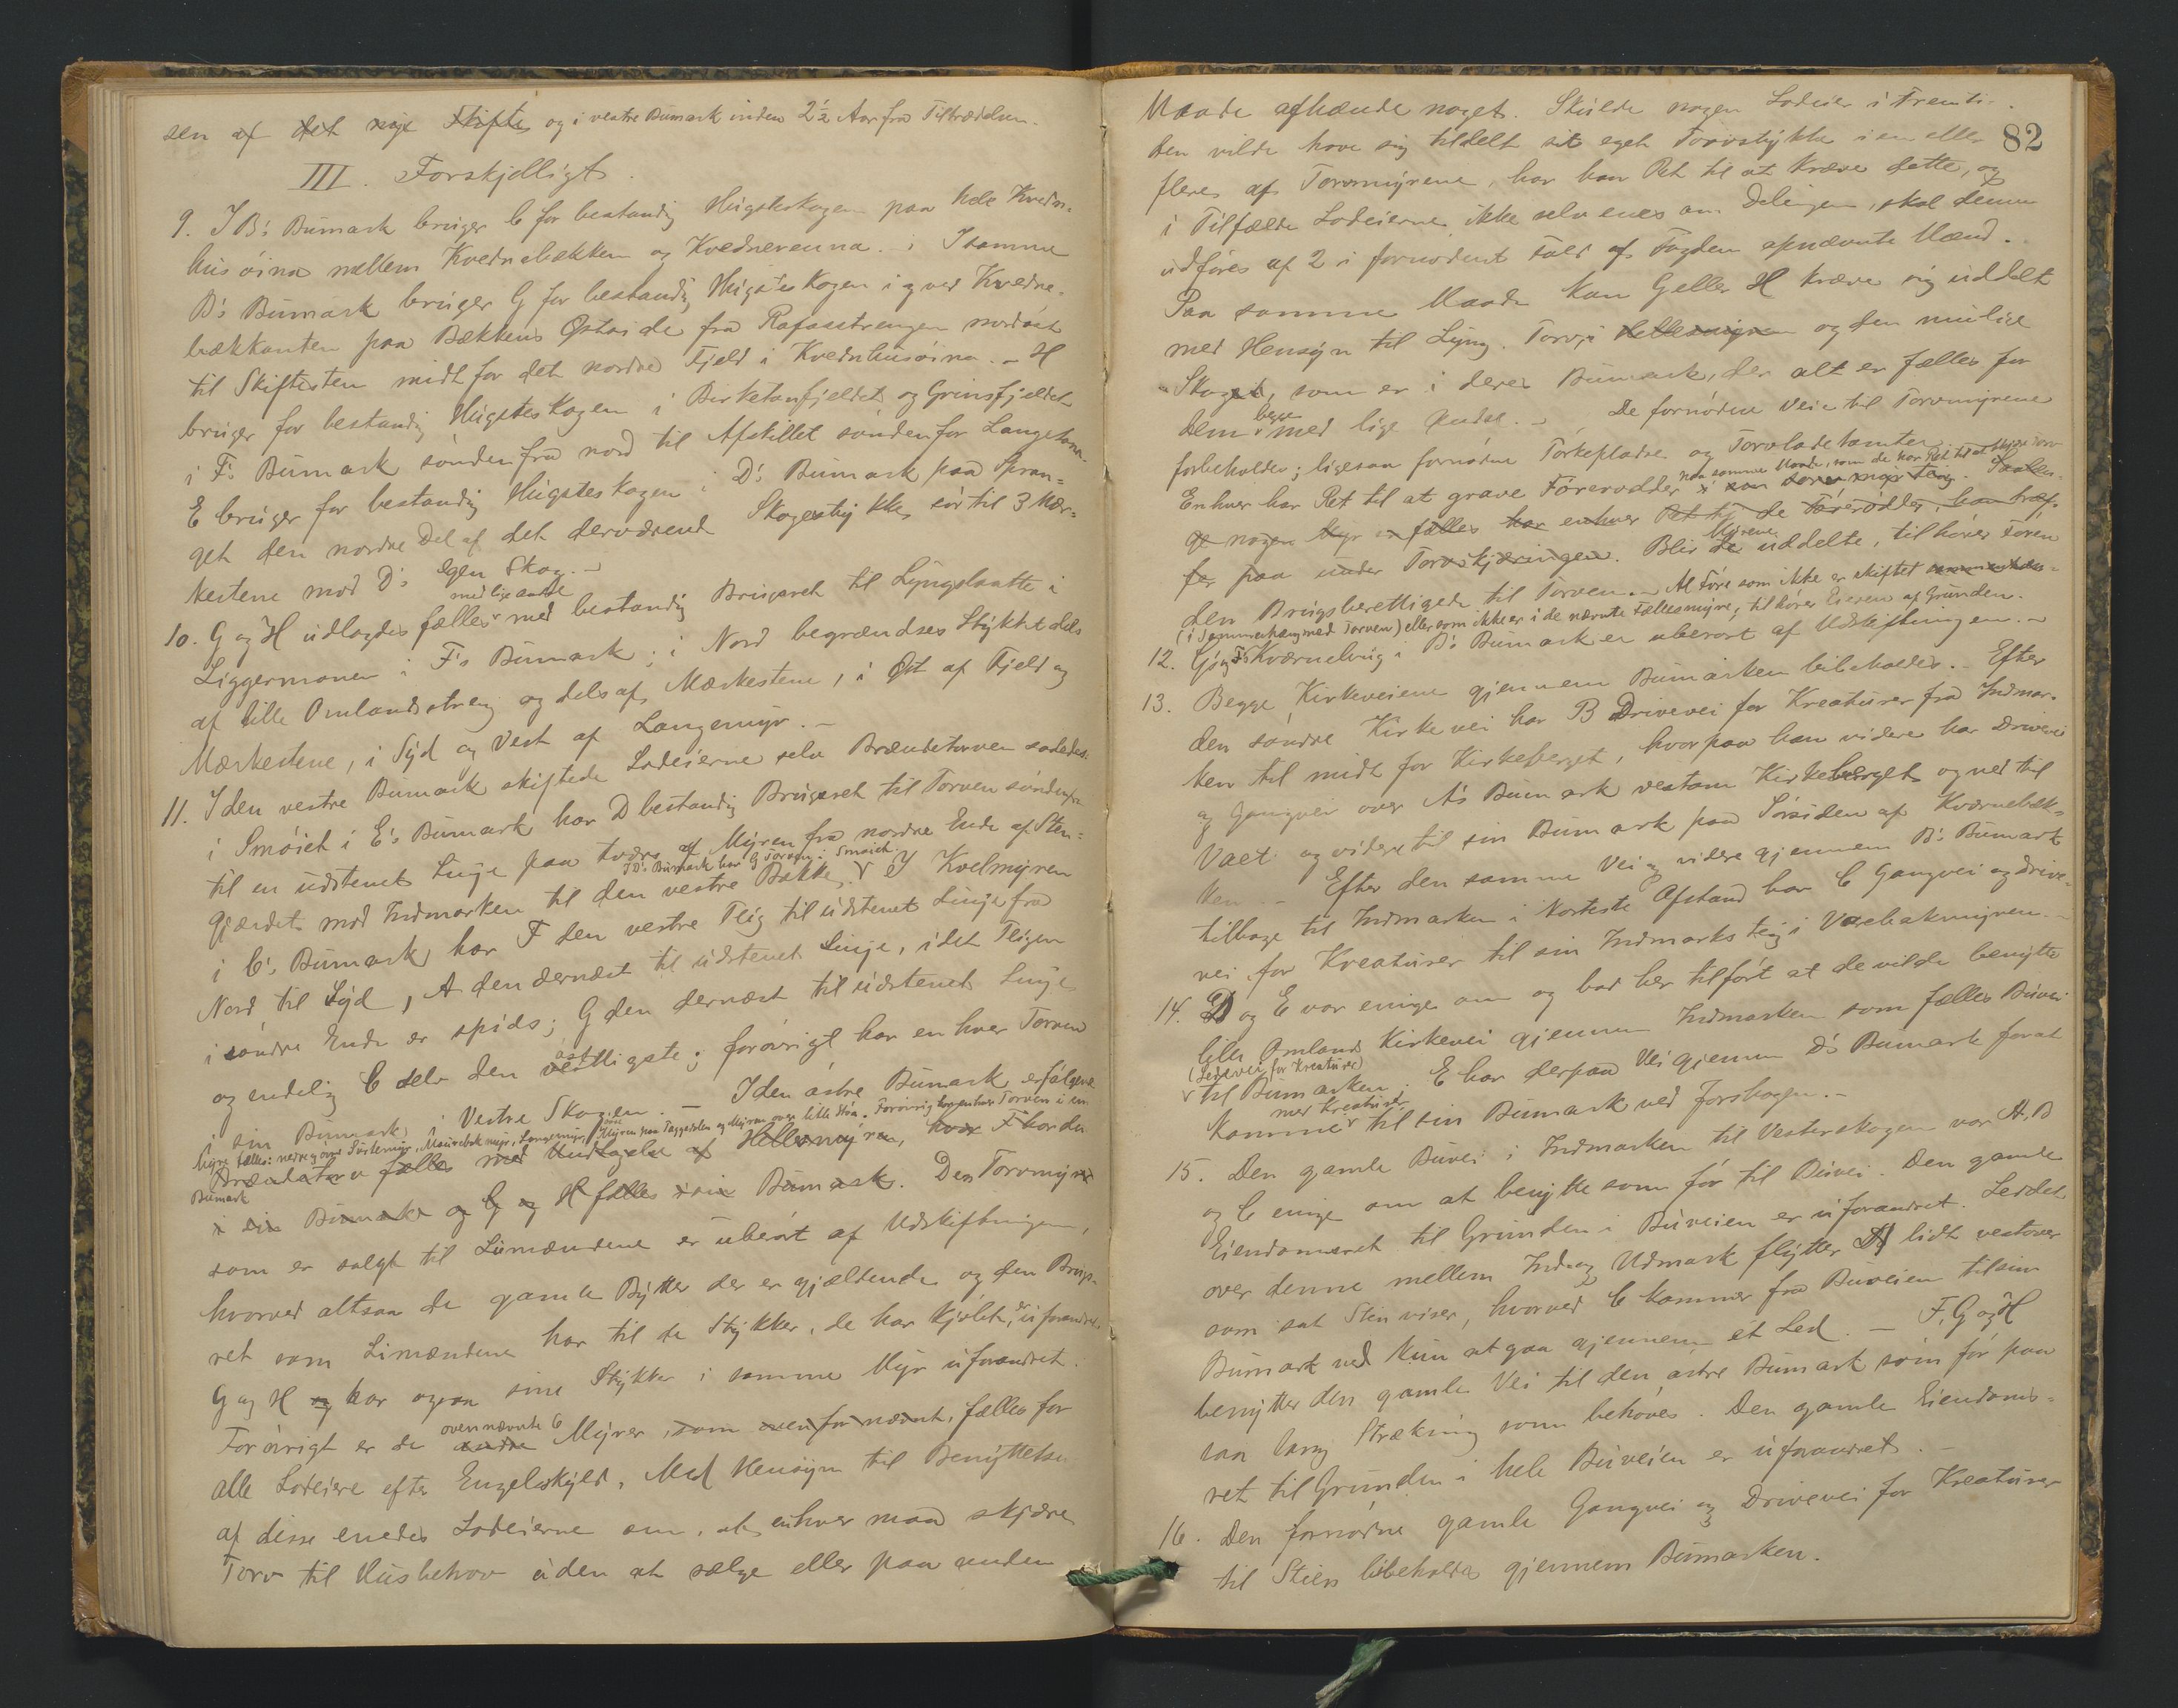 sen af det nøje Skifte og i vestre Bumark inden 2½ Aar fra Tiltrædelsen.
III. Forskjelligt.
9. I B's Bumark bruger C for bestandig Hugsteskogen paa hele Kvedn-
husóina mellem Kvednebækken og Kvednerenna. i I samme
B's Bumark bruger G for bestandig Hugsteskogen i og ved Kvedne-
bækkanten paa Bækkens Østside fra Rafosstrengen nordøst
til Skiftesten midt for det nordre Fjeld i Kvednhusóina. - H
bruger for bestandig Hugsteskogen i Birketanfjeldet og Grinsfjeldet
i F's Bumark sønden fra nord til Afskillet søndenfor Langetona.
E bruger for bestandig Hugsteskogen i D's Bumark paa Spran-
get den nordre Del af det derværende Skogestykke sør til 3 Mær-
kestene mod D's egen Skog. -
10. G og H udlagdes fælles med lige andele med bestandig Brugsret til Lyngslaatte i
Liggermonen i F's Bumark; i Nord begrændses Stykket dels
af lille Omlandsstreng og dels af Mærkestene, i Øst af Fjeld og
Mærkestene, i Syd og Vest af Langemyr. -
11. I den vestre Bumark skiftede Lodeierne selv Brændetorven saaledes:
i Smóiet i E's Bumark har D bestandig Brugsret til Torven søndenfra
til en udstenet Linje paa tværs af Myren fra nordre Ende af Sten-
I D's Bumark har G Torven i Smóiet.
gjærdet mod Indmarken til den vestre Bakke. I Kvelmyren
i C's Bumark har F den vestre Teig til udstenet Linje fra
Nord til Syd, A den dernæst til udstenet Linje, idet Teigen
i søndre Ende er spids; G den dernæst til udstenet Linje
og endelig C selv den østligste; forøvrigt har enhver Torven
i sin Bumark i Vestre Skogen. - I den østre Bumark er følgende
Myre fælles: nedre og øvre Svartemyr, Maurebækmyr, Langemyr, Myren paa Taggedalen og Myren over lille Stóa. Forøvrig har enhver Torven i sin
Brændetorv fælles med Undtagelse af Hellemyren, hvor F har den
Bumark
i sin Bumark og G og H fælles i sin Bumark. Den Torvmyr
som er solgt til Limændene er uberørt af Udskiftningen,
hvorved altsaa de gamle Bytter der er gjældende og den Brugs-
ret som Limændene har til de Stykker, de har kjøbt, er uforandret.
G og H og har ogsaa sine Stykker i samme Myr uforandret.
Forøvrigt er de ovennævnte 6 andre Myrer, som ovenfor nævnt, fælles for
alle Lodeiere efter Engelskyld. Med Hensyn til Benyttelsen
af disse enedes Lodeierne om, at enhver maa skjære
Torv til Husbehov uden at sælge eller paa anden
82
Maade afhænde noget. Skulde nogen Lodeier i Fremti-
den vilde have sig tildelt sit eget Torvstykke i en eller
flere af Torvmyrene, har han Ret til at kræve dette, og
i Tilfælde Lodeierne ikke selv enes om Delingen, skal denne
udføres af 2 i fornødent Fald af Fogden opnævnte Mænd.
Paa samme Maade kan G eller H kræve sig uddelt
med Hensyn til Lyng. Torv i Hellemyren og den mulige
Skoget, som er i deres Bumark, der alt er fælles for
dem begge med lige Andel. - De fornødne Veie til Torvmyrene
forbeholdes; ligesaa fornødne Tørkepladse og Torvladetomter.
Enhver har Ret til at grave Tórerødder paa samme Maade, som de har Ret til at skjære Torv
i sin Torvmyrteig. Saalæn-
ge nogen Myr er fælles har enhver Ret til de Tórerødder, han træf-
fer paa under Torvskjæringen. Blir Myrene de uddelte, tilhører Toren
den Brugsberettigede til Torven. - Al Tóre som ikke er skiftet
(i Sammenhæng med Torven) eller som ikke er i de nævnte Fællesmyre, tilhører Eieren af Grunden.
12. G's og F's Kværnebrug i B's Bumark er uberørt af Udskiftningen. -
13. Begge Kirkeveiene gjennem Bumarken bibeholdes. - Efter
den søndre Kirkevei har B Drivevei for Kreaturer fra Indmar-
ken til midt for Kirkeberget, hvorpaa han videre har Drivevei
og Gangvei over A's Bumark vestom Kirkeberget og ned til
Vaet og videre til sin Bumark paa Sørsiden af Kvernebæk-
ken. - Efter den samme Vei og videre gjennem B's Bumark
tilbage til Indmarken i korteste Afstand har C Gangvei og Drive-
vei for Kreaturer til sin Indmarksteig i Varebakmyren. -
14. D og E var enige om og bad her tilført at de vilde benytte
lille Omlands Kirkevei gjennem Indmarken som fælles Buvei
(Ledevei for Kreaturer)
til Bumarken. E har derpaa Vei gjennem D's Bumark forat
komme med Kreaturer til sin Bumark ved Forshogen. -
15. Den gamle Buvei i Indmarken til Vesterskogen var A, B
og C enige om at benytte som før til Buvei. Den gamle
Eiendomsret til Grunden i Buveien er uforandret. Leddet
over denne mellem Ind- og Udmark flytter A lidt vestover
som sat Sten viser, hvorved C kommer fra Buveien til sin
Bumark ved kun at gaa gjennem ét Led. - F, G og H
benytter den gamle Vei til den østre Bumark som før paa
saa lang Strækning som behøves. Den gamle Eiendoms-
ret til Grunden i hele Buveien er uforandret. -
16. Den fornødne gamle Gangvei og Drivevei for Kreaturer
til Stien bibeholdes gjennem Bumarken.